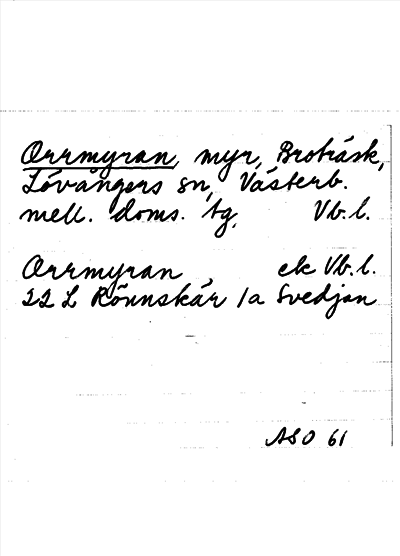 Orrmyran, myr, Broträsk,
Lövångers sn, Västerb.
mell. doms. tg, Vb. l.
Orrmyran ek Vb. l.
22 L Rönnskär 1a Svedjan
ASO 61